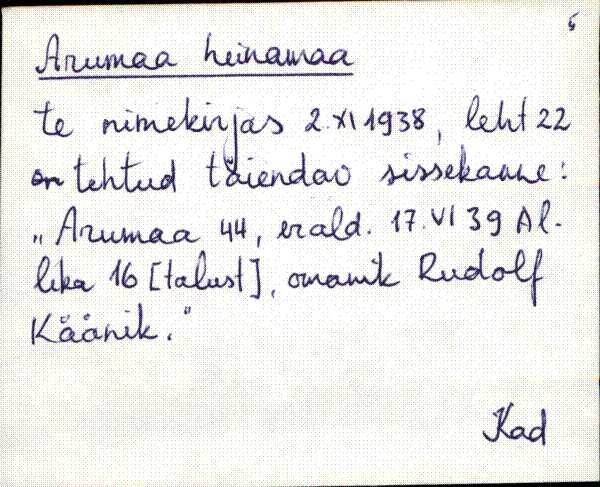 5
Arumaa heinamaa
te nimekirjas 2.XI 1938, leht 22
on tehtud täiendav sissekanne:
„Arumaa 44, erald. 17.VI 39 Al-
lika 16 [talust], omanik Rudolf
Käänik."
Kad